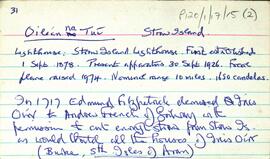 31
P120/1/17/15 (2)
Oileán na Tuí Straw Island
Lighthouse: Straw Island Lighthouse. First established
1 Sept. 1878. Present apparatus 30 Sept. 1926. Focal
plane raised 1974. Nominal range 10 miles. 1650 candelas.
In 1717 Edmund Fitzpatrick demised Inis
Oírr to Andrew French of Galway with
permission to cut enough straw from Straw Is.
as would thatch all the houses of Inis Oírr
(Burke, 5th Isles of Aran)